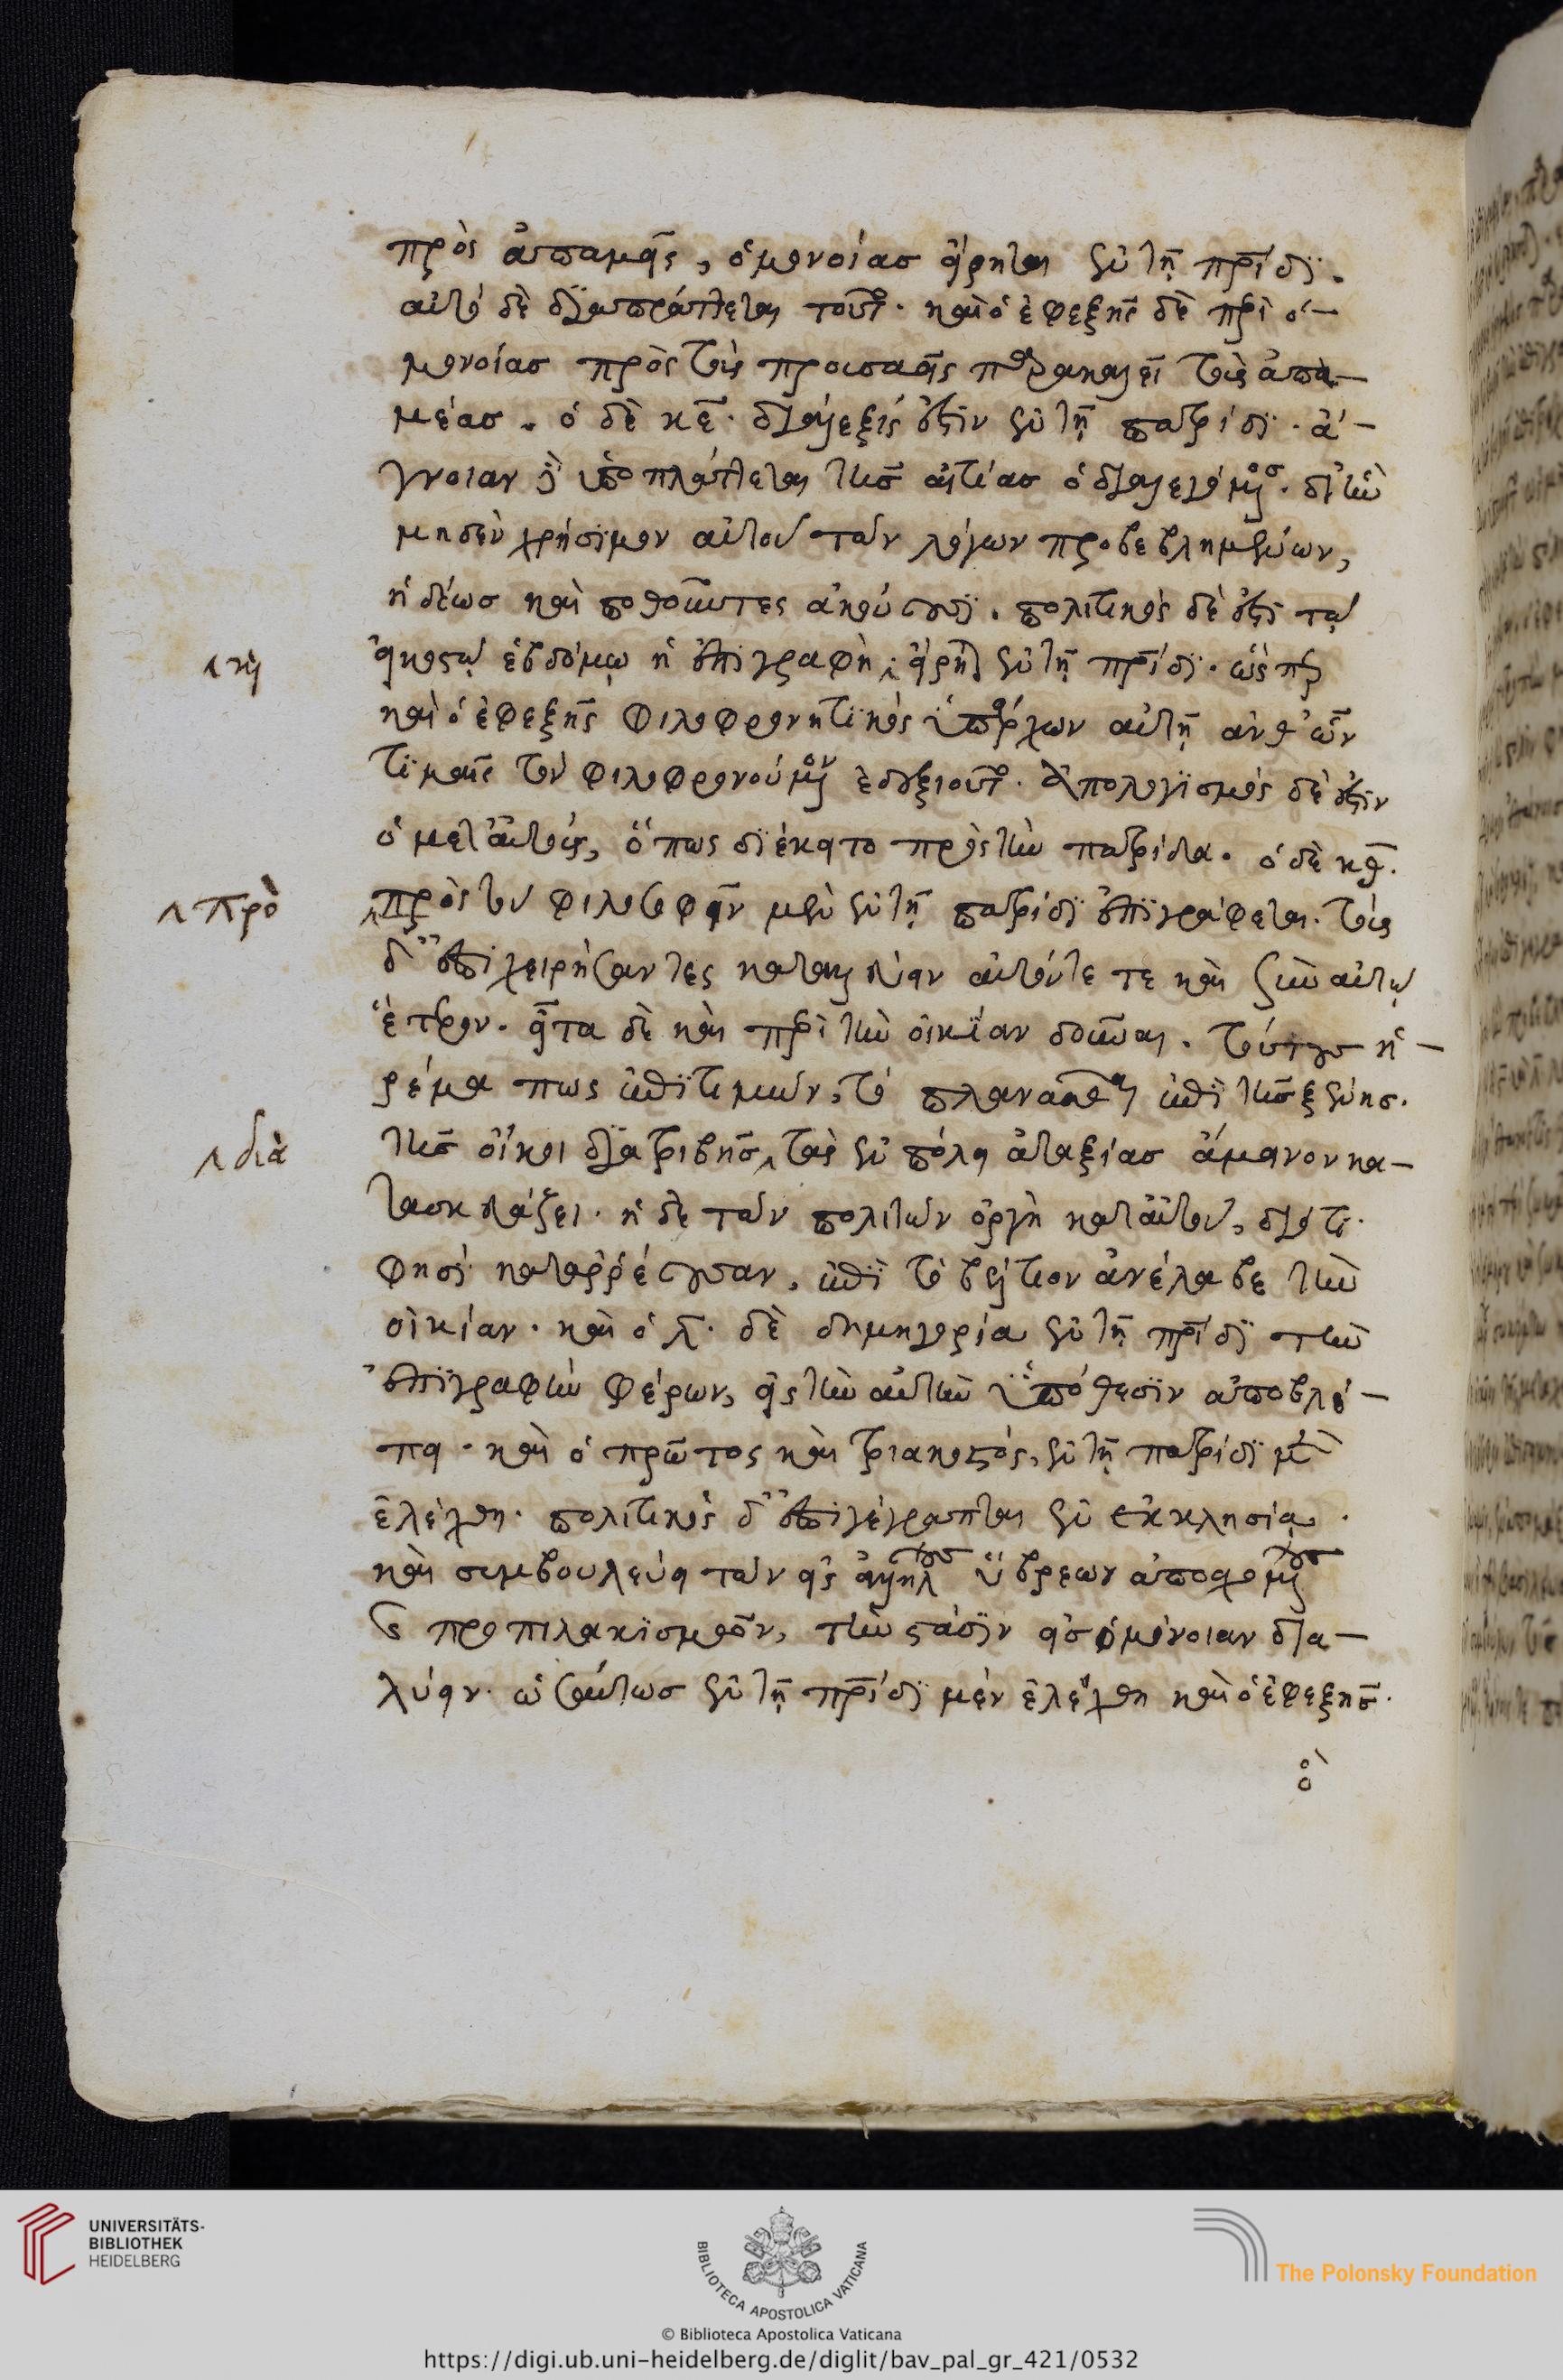 πρὸς ἀπαμεῖς, ὁμονοίας εἴρηται ἐν τῇ πρίδι.
αὐτὸ δὲ διαπράττεται τοῦτο. καὶ ὁ ἐφεξῆς δὲ περὶ ὁ-
μονοίας πρὸς τοὺς προυσαεῖς παρακαλεῖ τοὺς ἀπα-
μέας. ὁ δὲ κε. διάλεξίς ἐστιν ἐν τῇ πατρίδι. ἄ-
γνοιαν δὲ ὑποπλάττεται τῆς αἰτίας ὁ διαλεγόμενος. δι' ἣν
μηδὲν χρήσιμον αὐτοῦ τῶν λόγων προβεβλημένων,
ἡδέως καὶ ποθοῦντες ἀκούουσι. πολιτικὸς δέ ἐστι τῷ
εἰκοστῷ ἑβδόμῳ ἡ ἐπιγραφὴ, εἴρηται ἐν τῇ πρίδι. ὥσπερ
^ καὶ
καὶ ὁ ἐφεξῆς φιλοφρονητικὸς ὑπάρχων αὐτῇ ἀνθ' ὧν
τιμαῖς τὸν φιλοφρονούμενον ἐδεξιοῦτο. ἀπολογισμὸς δέ ἐστιν
ὁ μετ' αὐτούς, ὅπως διέκειτο πρὸς τὴν πατρίδα. ὁ δὲ κθ.
^ πρὸ
πρὸς τοῦ φιλοσοφεῖν μὲν ἐν τῇ πατρίδι ἐπιγράφεται. τοὺς
δ' ἐπιχειρήσαντες καταλεύειν αὐτόν τε καὶ σὺν αὐτῷ
ἕτερον. εἶτα δὲ καὶ περὶ τὴν οἰκίαν δοῦναι. τούτους ἠ-
ρέμα πως ἐπιτιμῶν, τὸ πλανᾶσθαι ἐπὶ τῆς ξένης.
^ διὰ
τῆς οἴκοι διατριβῆς, τὰς ἐν πόλει ἀταξίας ἄμεινον κα-
τασκευάζει. ἡ δὲ τῶν πολιτῶν ὀργὴ κατ' αὐτοῦ, διότι
φησὶ καταρρέουσαν, ἐπὶ τὸ βέλτιον ἀνέλαβε τὴν
οἰκίαν. καὶ ὁ λ. δὲ δημηγορία ἐν τῇ πρίδι τὴν
ἐπιγραφὴν φέρων, εἰς τὴν αὐτὴν ὑπόθεσιν ἀποβλέ-
πει. καὶ ὁ πρῶτος καὶ τριακοστός, ἐν τῇ πατρίδι μὲν
ἐλέχθη. πολιτικὸς δ' ἐπιγέγραπται ἐν ἐκκλησίᾳ.
καὶ συμβουλεύει τῶν εἰς ἀλλήλους ὕβρεων ἀποσχομένους
καὶ προπιλακισμῶν, τὴν στάσιν εἰς ὁμόνοιαν δια-
λύειν. ὡσαύτως ἐν τῇ πρίδι μὲν ἐλέχθη καὶ ὁ ἐφεξῆς.
ὃ
UNIVERSITÄTS-
BIBLIOTHEK
HEIDELBERG
BIBLIOTECA APOSTOLICA VATICANA
The Polonsky Foundation
© Biblioteca Apostolica Vaticana
https://digi.ub.uni-heidelberg.de/diglit/bav_pal_gr_421/0532